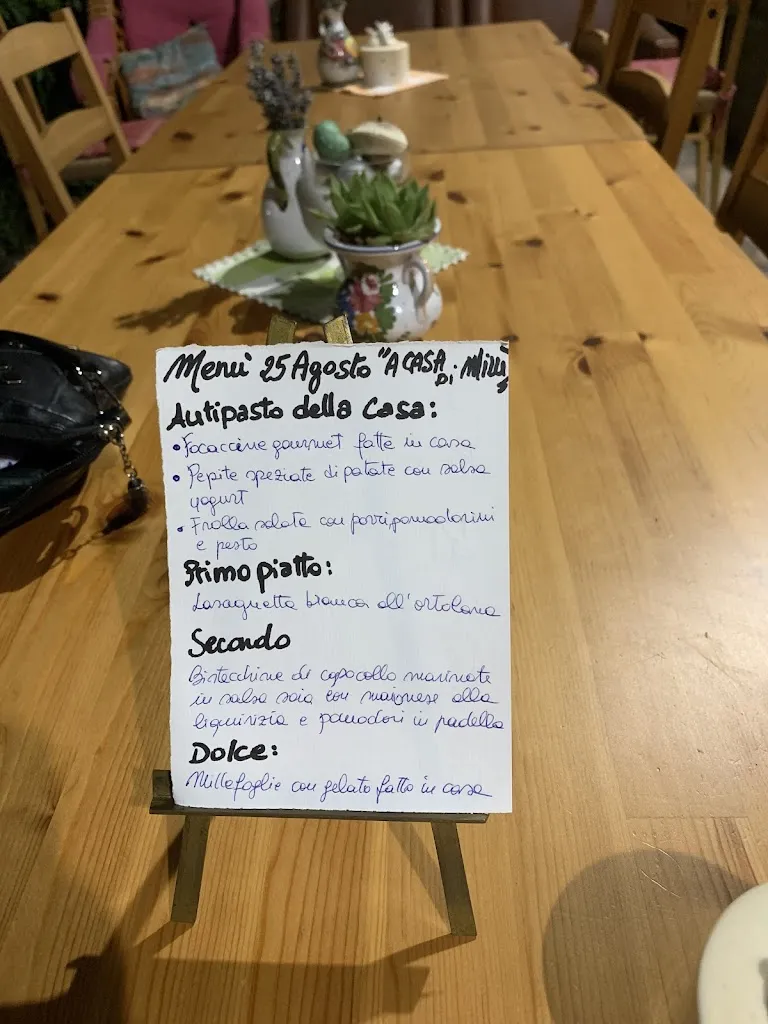 Menù 25 Agosto "A CASA Di Milli"
Antipasto della Casa:
• Focaccine gourmet fatte in casa
• Pepite speziate di patate con salsa
yogurt
• Frolla salata con porri, pomodorini
e pesto
Primo piatto:
Lasagnetta bianca all'ortolana
Secondo
Bistecchine di capocollo marinate
in salsa soia con maionese alla
liquirizia e pomodori in padella
Dolce:
Millefoglie con gelato fatto in casa